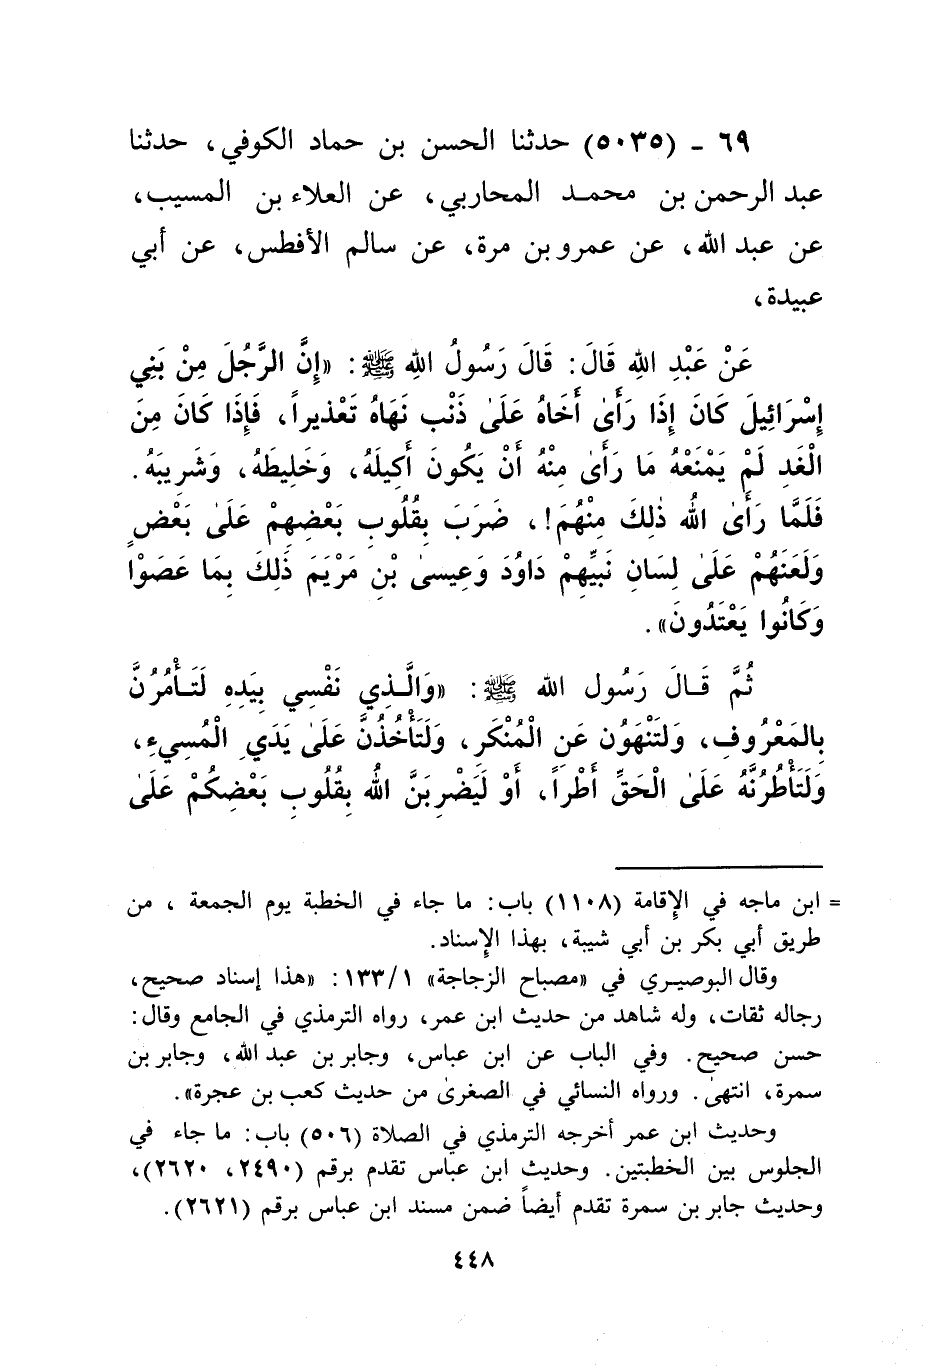 ٦٩ - (٥٠٣٥) حدثنا الحسن بن حماد الكوفي، حدثنا
عبد الرحمن بن محمد المحاربي، عن العلاء بن المسيب،
عن عبد الله، عن عمرو بن مرة، عن سالم الأفطس، عن أبي
عبيدة،
عَنْ عَبْدِ اللهِ قَالَ: قَالَ رَسُولُ اللهِ ﷺ: «إِنَّ الرَّجُلَ مِنْ بَنِي
إِسْرَائِيلَ كَانَ إِذَا رَأَىٰ أَخَاهُ عَلَىٰ ذَنْبٍ نَهَاهُ تَعْذِيراً، فَإِذَا كَانَ مِنَ
الْغَدِ لَمْ يَمْنَعْهُ مَا رَأَىٰ مِنْهُ أَنْ يَكُونَ أَكِيلَهُ، وَخَلِيطَهُ، وَشَرِيبَهُ.
فَلَمَّا رَأَىٰ اللهُ ذٰلِكَ مِنْهُمَ!، ضَرَبَ بِقُلُوبِ بَعْضِهِمْ عَلَىٰ بَعْضٍ
وَلَعَنَهُمْ عَلَىٰ لِسَانِ نَبِيِّهِمْ دَاوُدَ وَعِيسىٰ بْنِ مَرْيَمَ ذٰلِكَ بِمَا عَصَوْا
وَكَانُوا يَعْتَدُونَ».
ثُمَّ قَالَ رَسُول الله ﷺ: «وَالَّذِي نَفْسِي بِيَدِهِ لَتَأْمُرُنَّ
بِالمَعْرُوفِ، وَلَتَنْهَوُن عَنِ الْمُنْكَرِ، وَلَتَأْخُذُنَّ عَلَىٰ يَدَيِ الْمُسِيءِ،
وَلَتَأْطُرُنَّهُ عَلَىٰ الْحَقِّ أَطْراً، أَوْ لَيَضْرِبَنَّ اللهُ بِقُلُوبِ بَعْضِكُمْ عَلَىٰ
= ابن ماجه في الإقامة (١١٠٨) باب: ما جاء في الخطبة يوم الجمعة ، من
طريق أبي بكر بن أبي شيبة، بهذا الإسناد.
وقال البوصيري في «مصباح الزجاجة» ١/١٣٣: «هذا إسناد صحيح،
رجاله ثقات، وله شاهد من حديث ابن عمر، رواه الترمذي في الجامع وقال:
حسن صحيح. وفي الباب عن ابن عباس، وجابر بن عبد الله، وجابر بن
سمرة، انتهىٰ. ورواه النسائي في الصغرىٰ من حديث كعب بن عجرة».
وحديث ابن عمر أخرجه الترمذي في الصلاة (٥٠٦) باب: ما جاء في
الجلوس بين الخطبتين. وحديث ابن عباس تقدم برقم (٢٤٩٠، ٢٦٢٠)،
وحديث جابر بن سمرة تقدم أيضاً ضمن مسند ابن عباس برقم (٢٦٢١).
٤٤٨